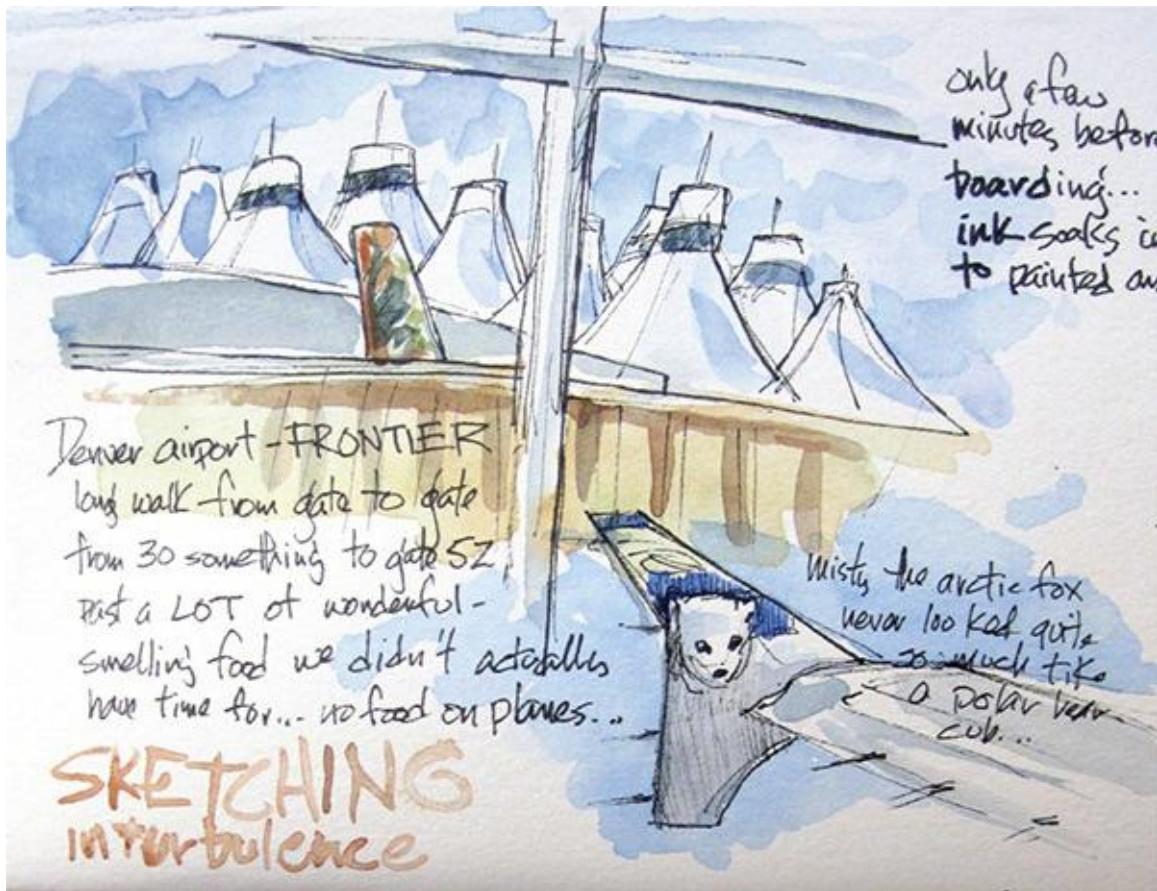 only a few
minutes before
boarding...
ink soaks in
to painted an
Denver airport - FRONTIER
long walk from gate to gate
from 30 something to gate 52
past a LOT of wonderful-
smelling food we didn't actually
have time for... no food on planes...
misty the arctic fox
never looked quite
so much like
a polar bear
cub...
SKETCHING
in turbulence